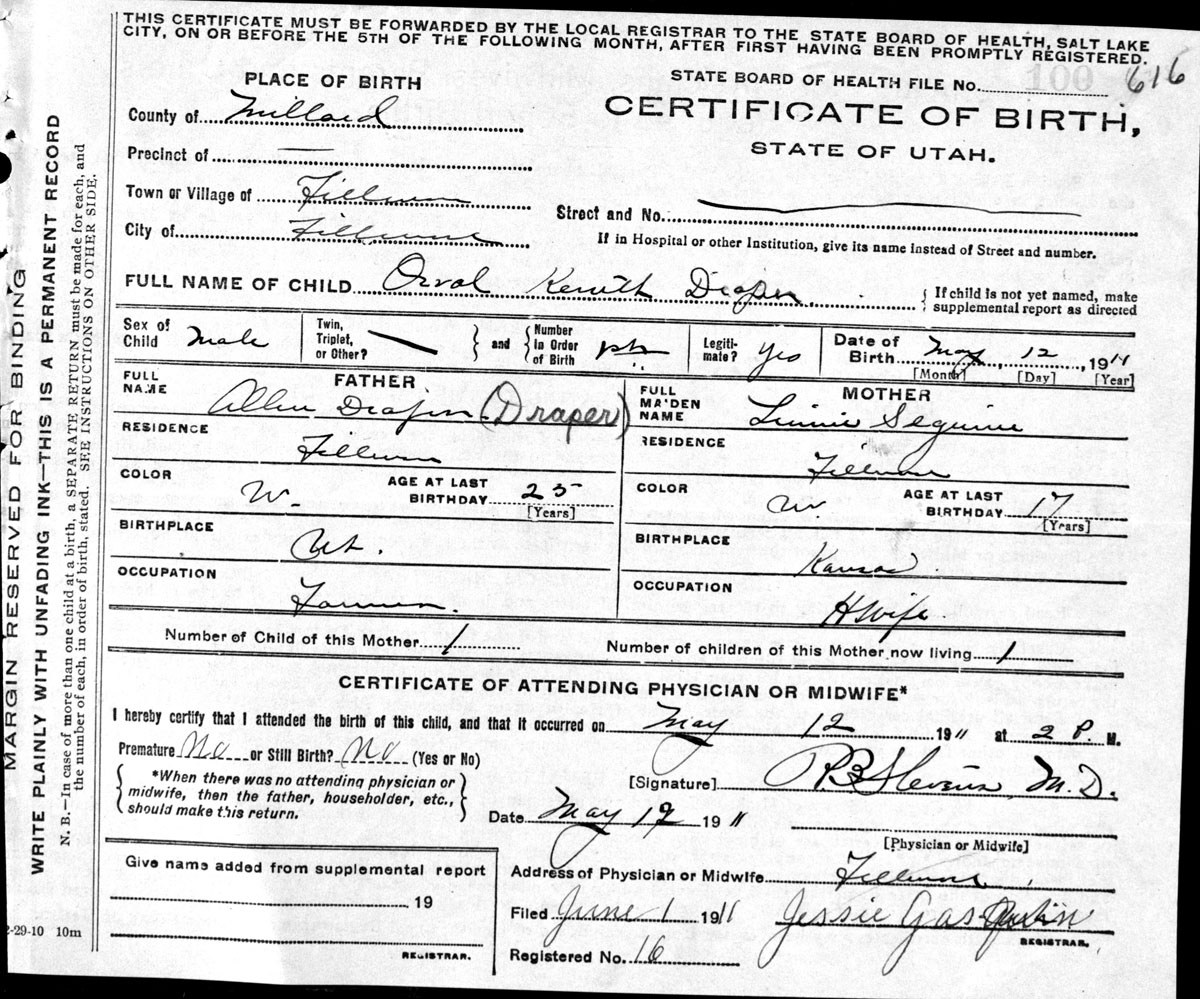 THIS CERTIFICATE MUST BE FORWARDED BY THE LOCAL REGISTRAR TO THE STATE BOARD OF HEALTH, SALT LAKE
CITY, ON OR BEFORE THE 5TH OF THE FOLLOWING MONTH, AFTER FIRST HAVING BEEN PROMPTLY REGISTERED.
PLACE OF BIRTH
STATE BOARD OF HEALTH FILE No. 100 616
County of Millard
CERTIFICATE OF BIRTH,
STATE OF UTAH.
Precinct of
Town or Village of Fillmore
Street and No.
City of Fillmore
If in Hospital or other Institution, give its name instead of Street and number.
FULL NAME OF CHILD Orval Draper
{ If child is not yet named, make
supplemental report as directed
Sex of Child Male
Twin, Triplet, or Other?
and
Number in Order of Birth
Legiti-mate? Yes
Date of Birth May 12, 1911
[Month] [Day] [Year]
FATHER
FULL NAME Allen Draper (Draper)
RESIDENCE Fillmore
COLOR W.
AGE AT LAST BIRTHDAY 25
[Years]
BIRTHPLACE Ut.
OCCUPATION Farmer.
MOTHER
FULL MAIDEN NAME Linnie
RESIDENCE Fillmore
COLOR W.
AGE AT LAST BIRTHDAY 17
[Years]
BIRTHPLACE Kansas
OCCUPATION HWife
Number of Child of this Mother 1
Number of children of this Mother now living 1
CERTIFICATE OF ATTENDING PHYSICIAN OR MIDWIFE*
I hereby certify that I attended the birth of this child, and that it occurred on May 12 1911 at 2 P. M.
Premature No or Still Birth? No (Yes or No)
*When there was no attending physician or
midwife, then the father, householder, etc.,
should make this return.
[Signature] Stevens, M.D.
Date May 1911
[Physician or Midwife]
Give name added from supplemental report
19
REGISTRAR.
Address of Physician or Midwife Fillmore
Filed June 1 1911 Jessie
REGISTRAR.
Registered No. 16
2-29-10 10m
MARGIN RESERVED FOR BINDING
WRITE PLAINLY WITH UNFADING INK—THIS IS A PERMANENT RECORD
N. B.—In case of more than one child at a birth, a SEPARATE RETURN must be made for each, and
the number of each, in order of birth, stated. SEE INSTRUCTIONS ON OTHER SIDE.